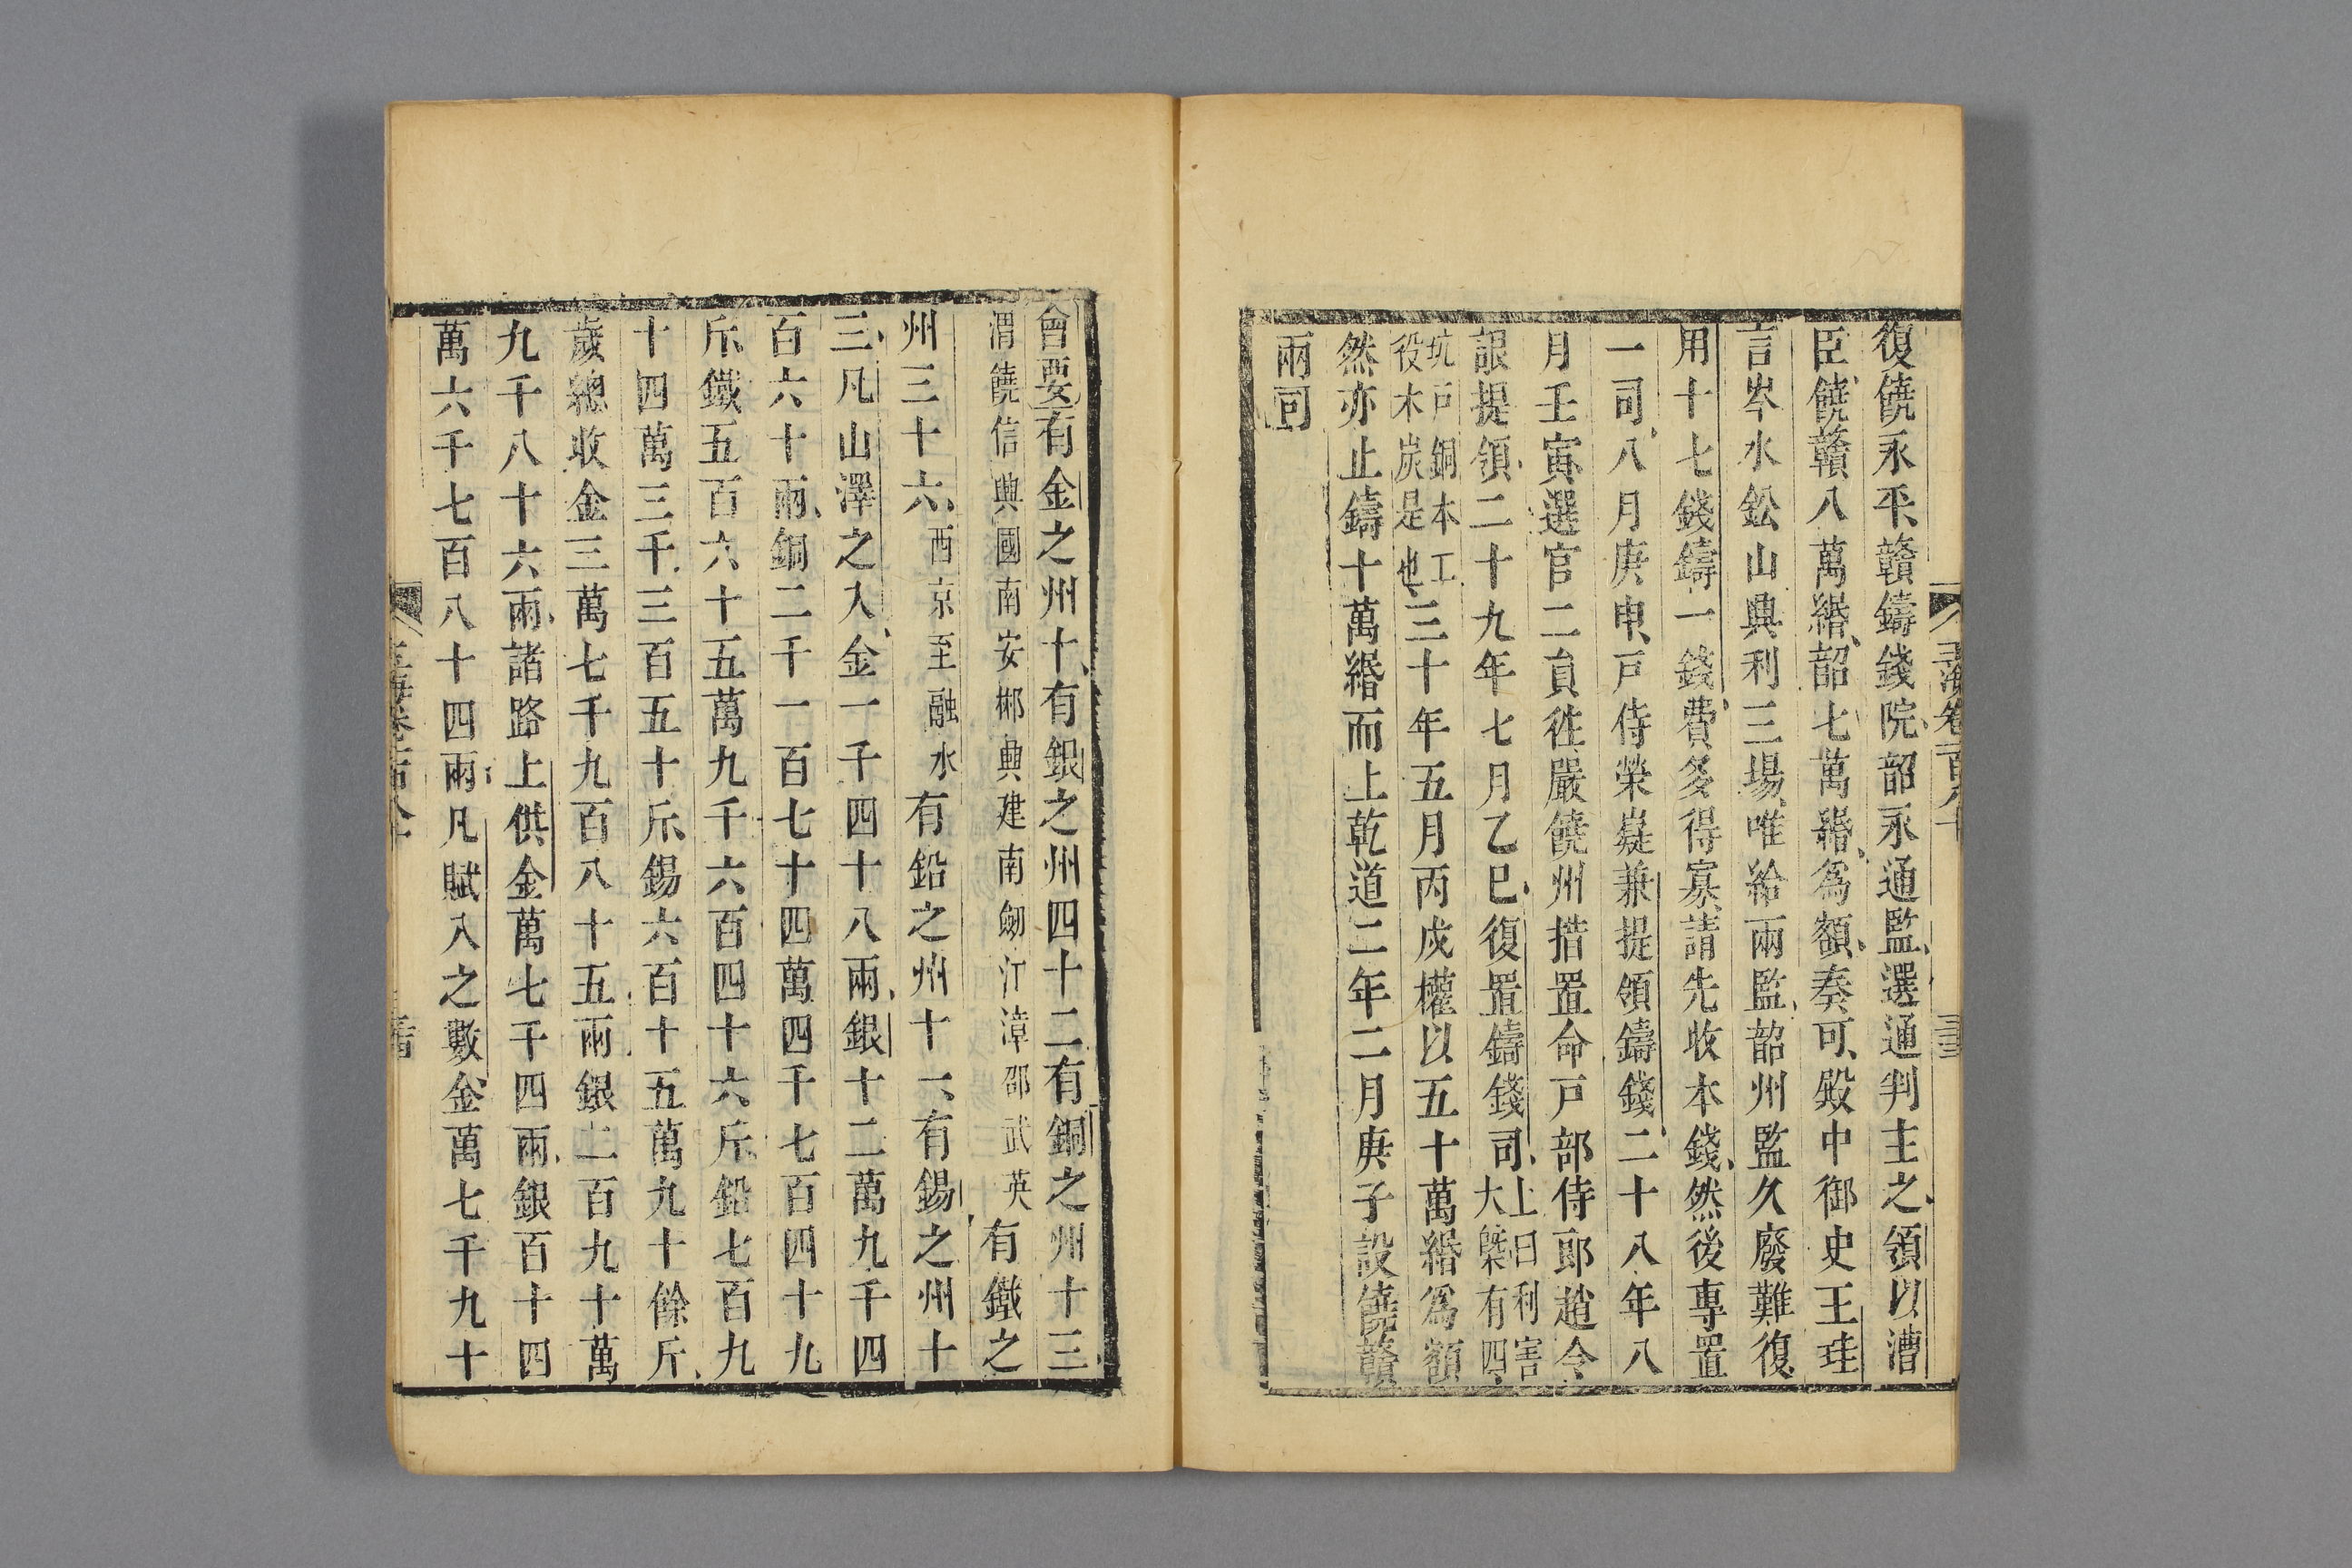 復饒永平贛鑄錢院韶永通監選通判主之領以漕
臣饒贛八萬緡韶七萬緡為額奏可殿中御史王珪
言岑水鈆山興利三場唯給兩監韶州監久廢難復
用十七錢鑄一錢費多得寡請先收本錢然後專置
一司八月庚申戸侍榮嶷兼提領鑄錢二十八年八
月壬寅選官二員徃嚴饒州措置命戸部侍郎趙令
詪提領二十九年七月乙巳復置鑄錢司上曰利害大槩有四
坑戸銅本工役木炭是也三十年五月丙戌權以五十萬緡為額
然亦止鑄十萬緡而上乾道二年二月庚子設饒贛
兩司
玉海卷一百八十
會要有金之州十有銀之州四十二有銅之州十三
渭饒信興國南安郴興建南劒汀漳邵武英有鐵之
州三十六西京至融水有鉛之州十一有錫之州十
三凡山澤之入金一千四十八兩銀十二萬九千四
百六十兩銅二千一百七十四萬四千七百四十九
斤鐵五百六十五萬九千六百四十六斤鉛七百九
十四萬三千三百五十斤錫六百十五萬九十餘斤
歲總收金三萬七千九百八十五兩銀二百九十萬
九千八十六兩諸路上供金萬七千四兩銀百十四
萬六千七百八十四兩凡賦入之數金萬七千九十